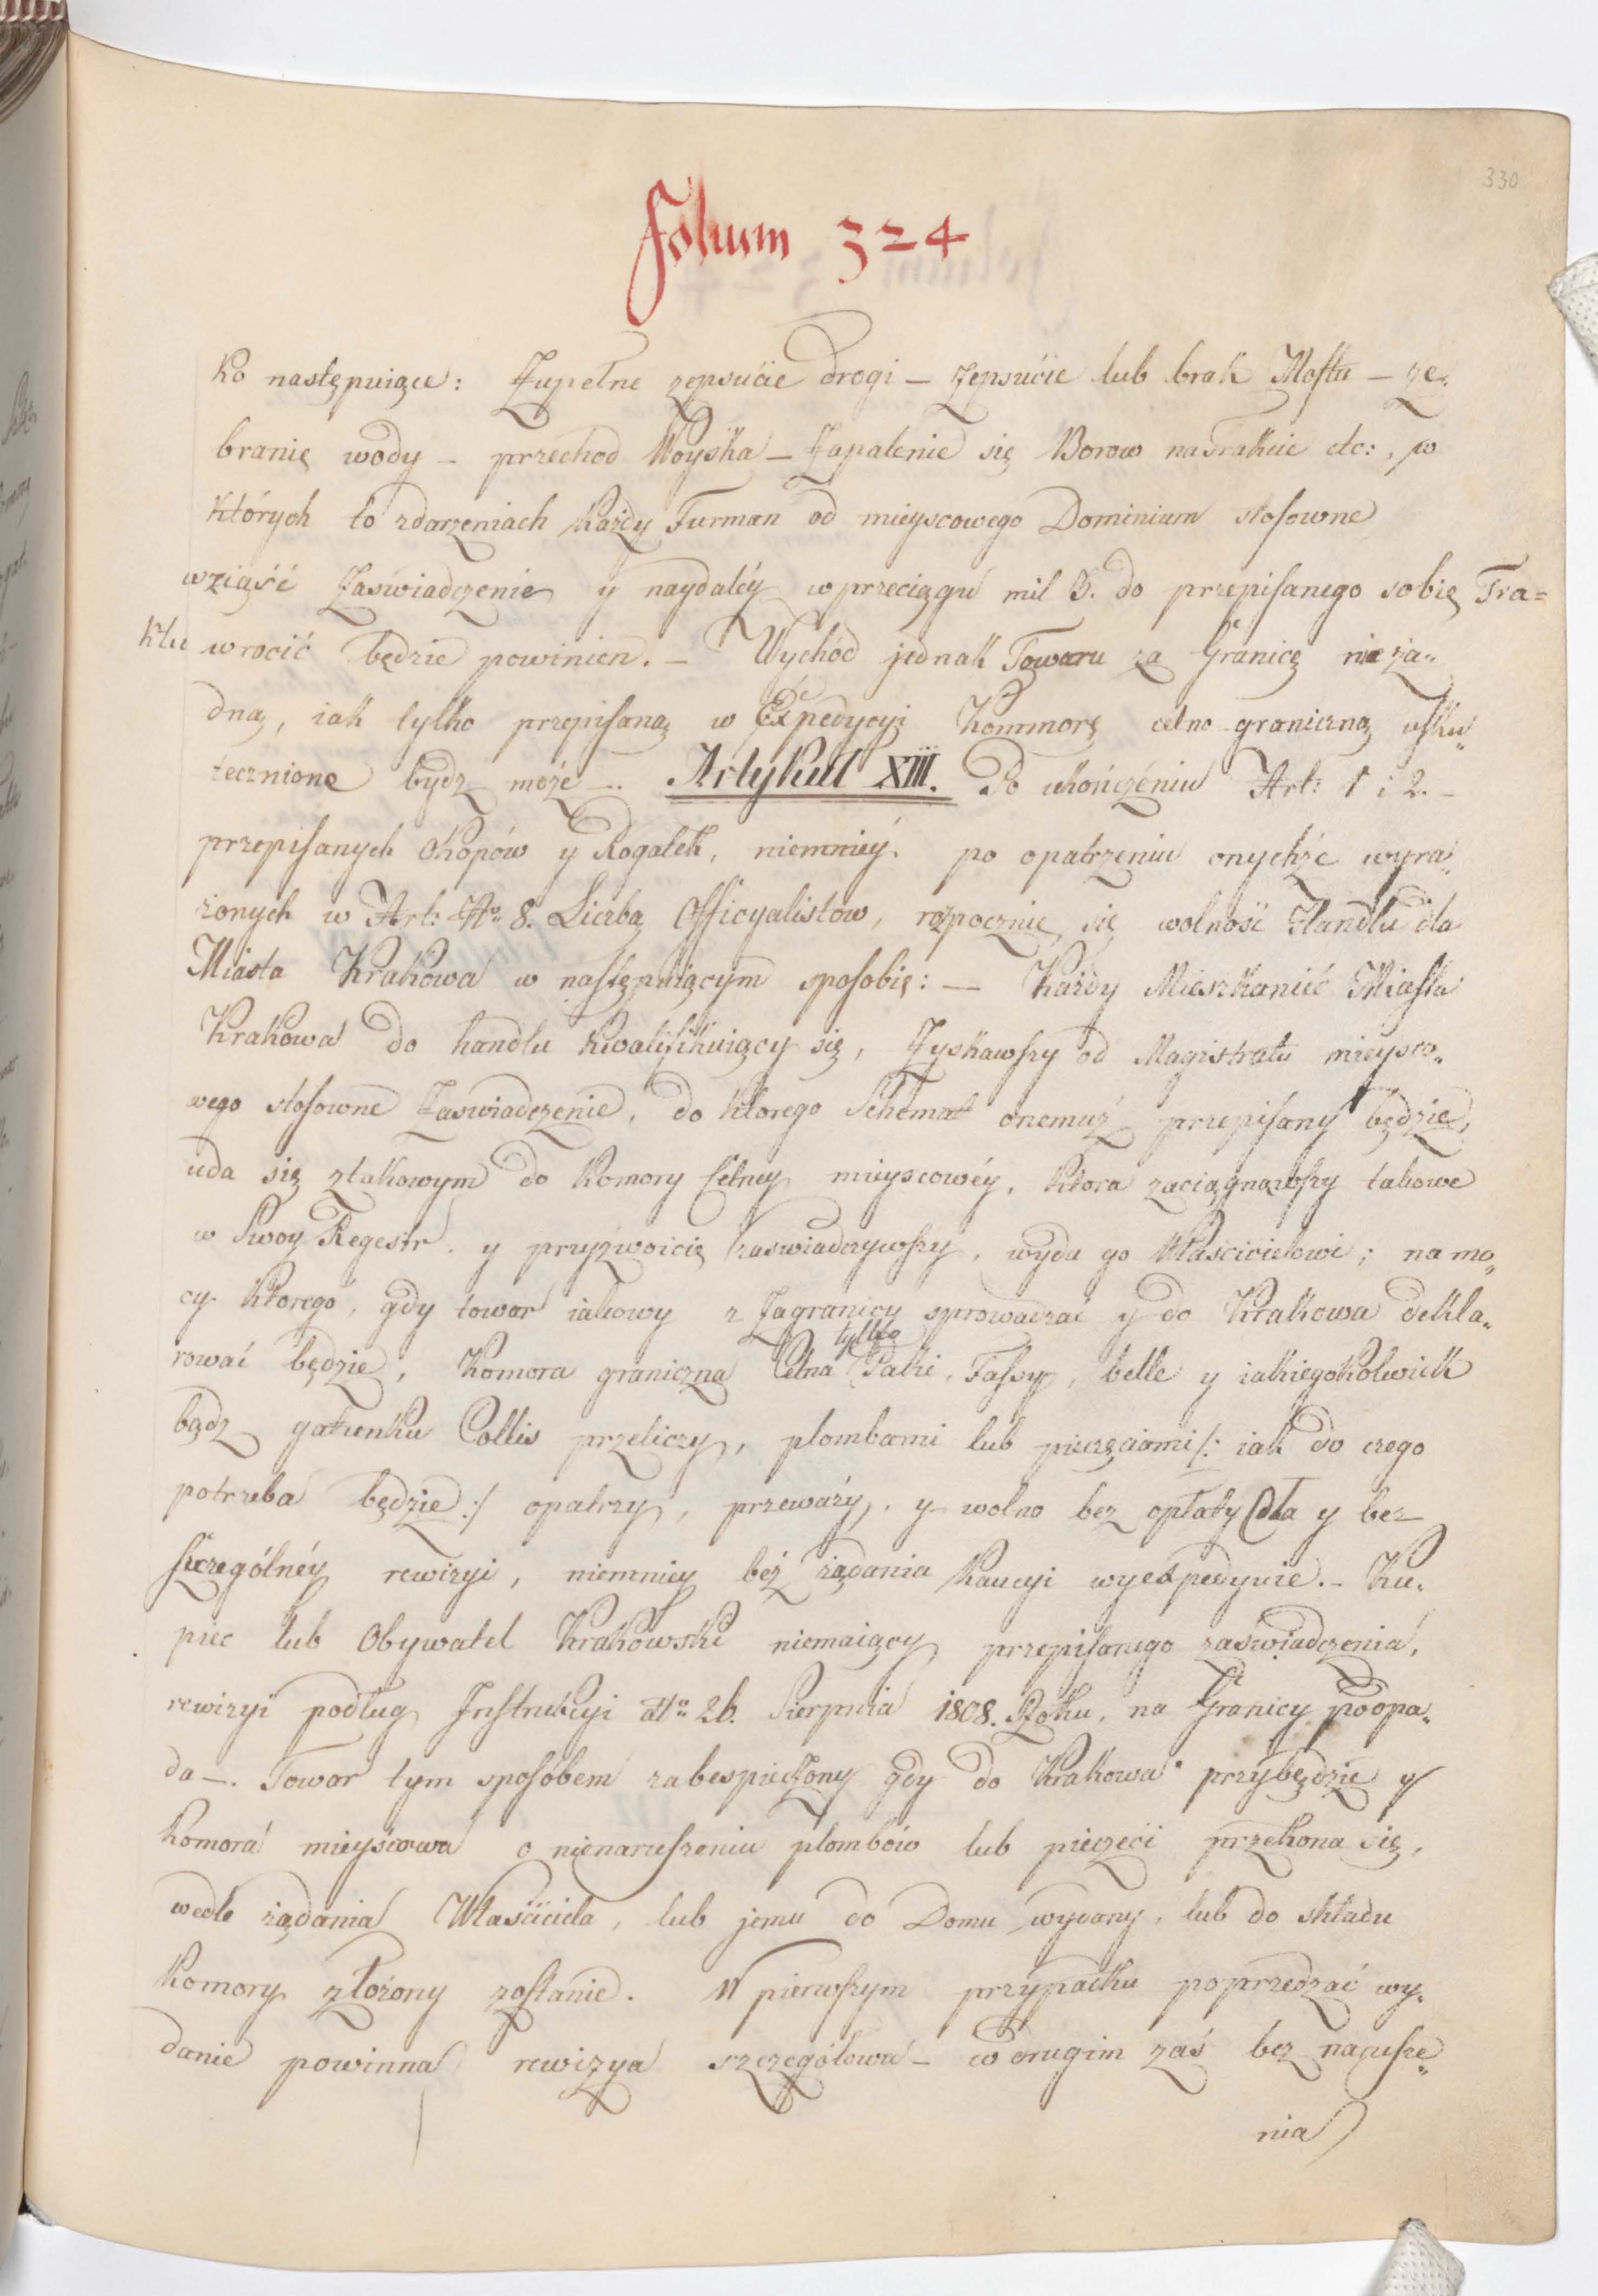 330
Folium 324
ko następuiące: Zupełne zepsucie drogi – zepsucie lub brak Mostu – ze„
branie wody – przechod Woyska – Zapalenie się Borow na trakcie etc:, w
których to zdarzeniach każdy Furman od mieyscowego Dominium stosowne
wziąść Zaświadczenie y naydaléy w przeciągu mil 3. do przepisanego sobie Tra=
ktu wrocić będzie powinien. – Wychód jednak Towaru za Granicę nie ża„
dną, iak tylko przepisaną w Expedycyi Kommorę celno graniczną usku„
tecznione bydz może –. Artykuł XIII. Po ukończeniu Art: 1 i 2. –
przepisanych Okopów y Rogatek, niemniéy po opatrzeniu onychże wyra„
żonych w Art: No 8. Liczbą Officyalistow, rozpocznie się wolność Handlu dla
Miasta Krakowa w następuiącym sposobie: – Każdy Mieszkaniec Miasta
Krakowa do handlu kwalifikuiący się, Zyskawszy od Magistratu mieysco„
wego stosowne Zaswiadczenie, do ktorego Schemat onemuż przepisany będzie,
uda się z takowym do Komory Celney mieyscowéy, ktora zaciągnąwszy takowe
w Swoy Regestr y przyzwoicie zaswiadczywszy, wyda go Właścicielowi; na mo„
cy ktorego, gdy towar iakowy z Zagranicy sprowadzać y do Krakowa dekla„
tylko
rować będzie, Komora graniczna Celna Paki, Fassy, belle y iakiegokolwiek
bądz gatunku Collis przeliczy, plombami lub pieczęciami /: iak do czego
potrzeba będzie :/ opatrzy, przeważy, y wolno bez opłaty Cła y bez
szczególnéy rewizyi, niemniey bez żądania Kaucyi wyexpedyuie. – Ku„
piec lub Obywatel Krakowski niemaiący przepisanego zaswiadczenia,
rewizyi podług Instrukcyi dto 26. Sierpnia 1808. Roku, na Granicy podpa„
da –. Towar tym sposobem zabespieczony gdy do Krakowa przybędzie y
Komora mieyscowa o nienaruszeniu plombów lub pieczęci przekona się,
wedle żądania Właściciela, lub jemu do Domu wydany, lub do składu
Komory złożony zostanie. W pierwszym przypadku poprzedzać wy„
danie powinna rewizya szczegółowa – w drugim zaś bez narusze„
nia